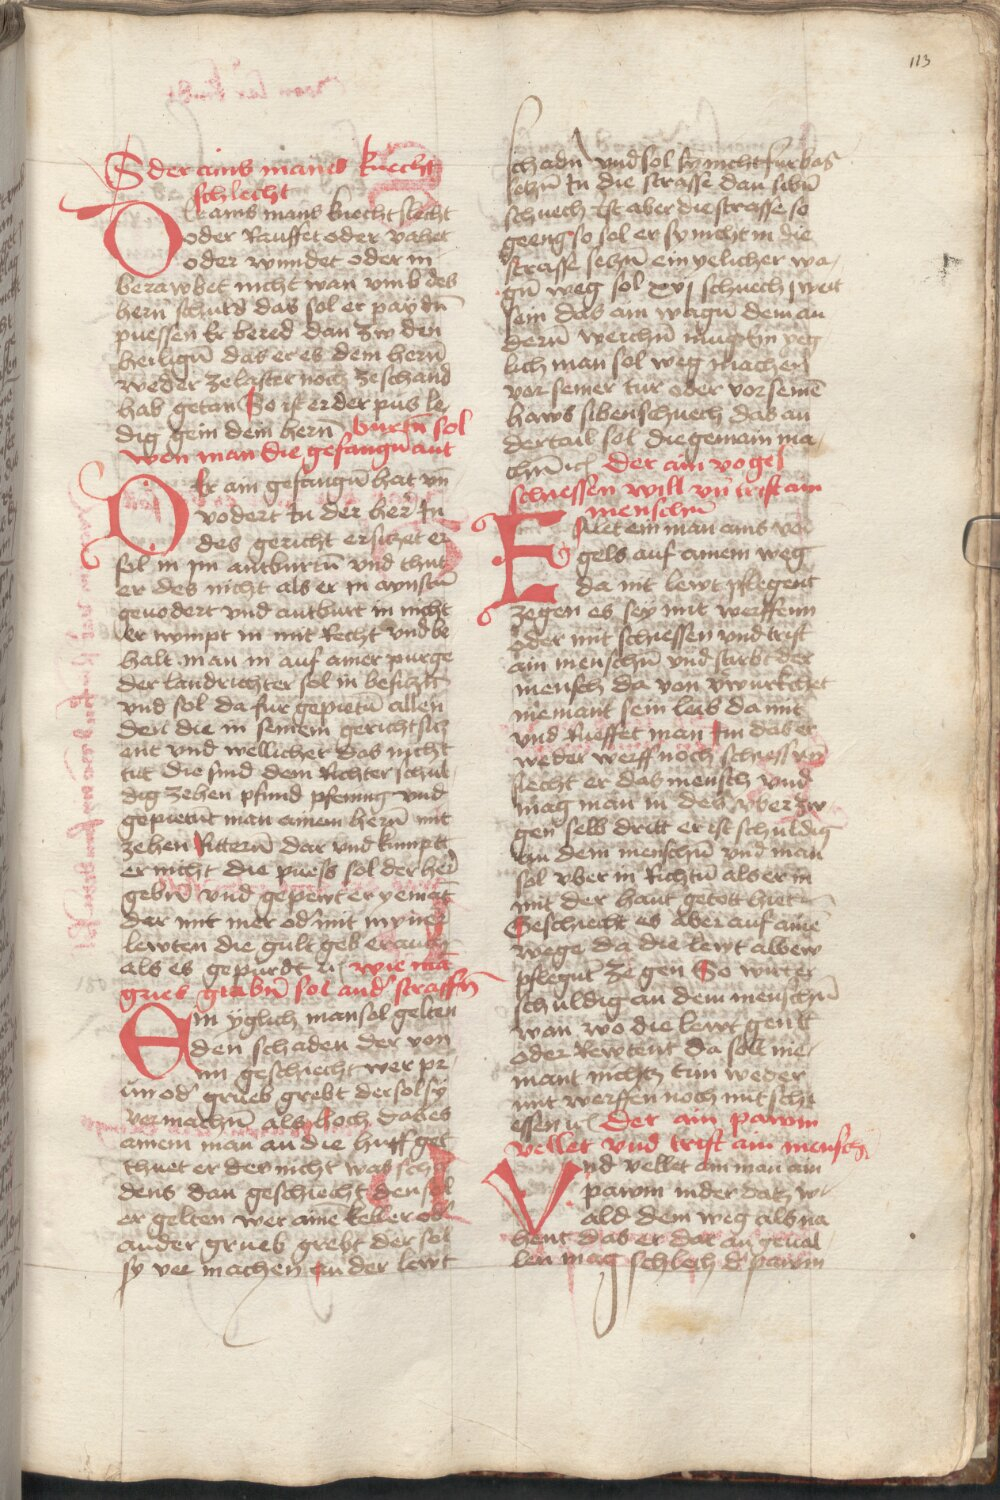 113
Sder ains manes knecht
schlecht
Der ains mans knecht slecht
oder Rauffet oder vahet
oder wundet oder in
berawbet nicht wan vmb des
hern schuld das sol er paydn̄
puessen Er bered dan zw den
heilign̄ das er es dem hern̄
weder ze laster noch ze schand
hab getan So ist er der pus le
dig gein dem hern̄ burtn̄ sol
wen man die gefangn̄ ant
Der ain gefangn̄ hat vn̄
vodert in der her in
des gericht er siczet er
sol in im antburtn̄ vnd thut
er des nicht als er in aynstn̄
geuodert vnd antburt in nicht
er nympt in mit Recht vnd be
halt man in auf ainer purge
der landrichter sol in besiczn̄
vnd sol da fur gepietn̄ allen
den die in seinem gericht sicz
ent vnd wellicher das nicht
tut die sind dem Richter schul
dig zehen pfund pfening vnd
gepiettn̄t man ainem hern̄ mit
zehen Rittern̄ dar vnd kumptt
er nicht die puess sol der her
gebn̄ vnd gepewt er yemāt
dar mit mer od mit myner
lewten die gult geb er auch
als es gepurdt ꝛc wie mā
grueb grabn̄ sol and strassn̄
Ein yglich man sol gelten
den schaden der von
im geschiecht wer pr
ūn od grueb grebt der sol sy
vermachn̄ als hoch das es
ainem man an die huff get
thuet er der nicht was scha
dens dan geschiecht den sol
er gelten wer aine keller od
ander grueb grebt der sol
sy ver machen an der lewt
schadn̄ vnd sol sy nicht furbas
seczn̄ in die strasse dan sibn̄
schuech Ist aber die strasse so
geeng so sol er sy nicht in die
strasse seczn̄ ein yelicher wa
gn̄ weg sol xvj schuech weit
sein das ain wagn̄ dem an
dern̄ weichn̄ mug Ein yeg
lich man sol weg machen
vor seiner tur oder vor seinē
haws siben schuech das an
der tail sol die gemain ma
chn̄ ꝛc der ain vogel
schiessen will vn̄ trift ain
menschn̄
Euet ein man ains vo
gels auf ainem weg
da nit lewt pflegent
ze gen es sey mit werffenn
oder mit schiessen vnd trift
ain menschn̄ vnd stirbt der
mensch da von v̈wurkchet
niemant sein leib da mit
vnd Rueffet man in das er
weder werff noch schiess vn̄
slecht er das mensch vnd
mag man in des vber zw
gen selb dritt er ist schuldig
an dem menschn̄ vnd man
sol vber in Richtn̄ als er in
mit der hant getott hiet
Geschiecht es Aber auf aine
wege da die lewt albew
pflegnt ze gen So wirt er
schuldig an dem menschn̄
wan wo die lewt gent
oder Rewtent da soll nie
mant nichcz tun weder
mit werffen noch mit schi
essen ꝛc Der ain pawm
vellet vnd trift ain mensch
Vnd vellet ain man ain
pawm in der dacz w
ald dem weg als na
hent das er dar an geual
len mag schlech d pawm